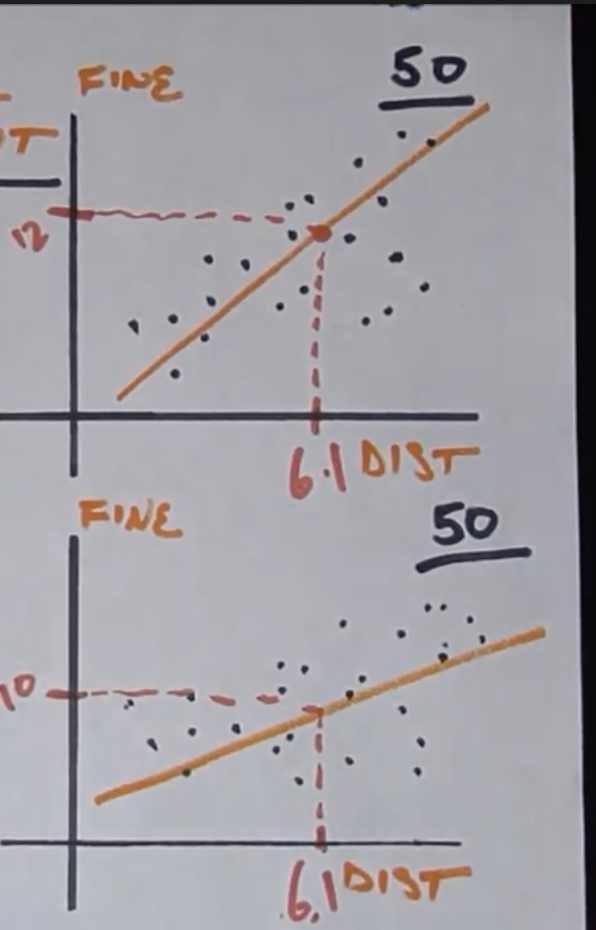 FINE
50
12
6.1 DIST
FINE
50
10
6.1 DIST